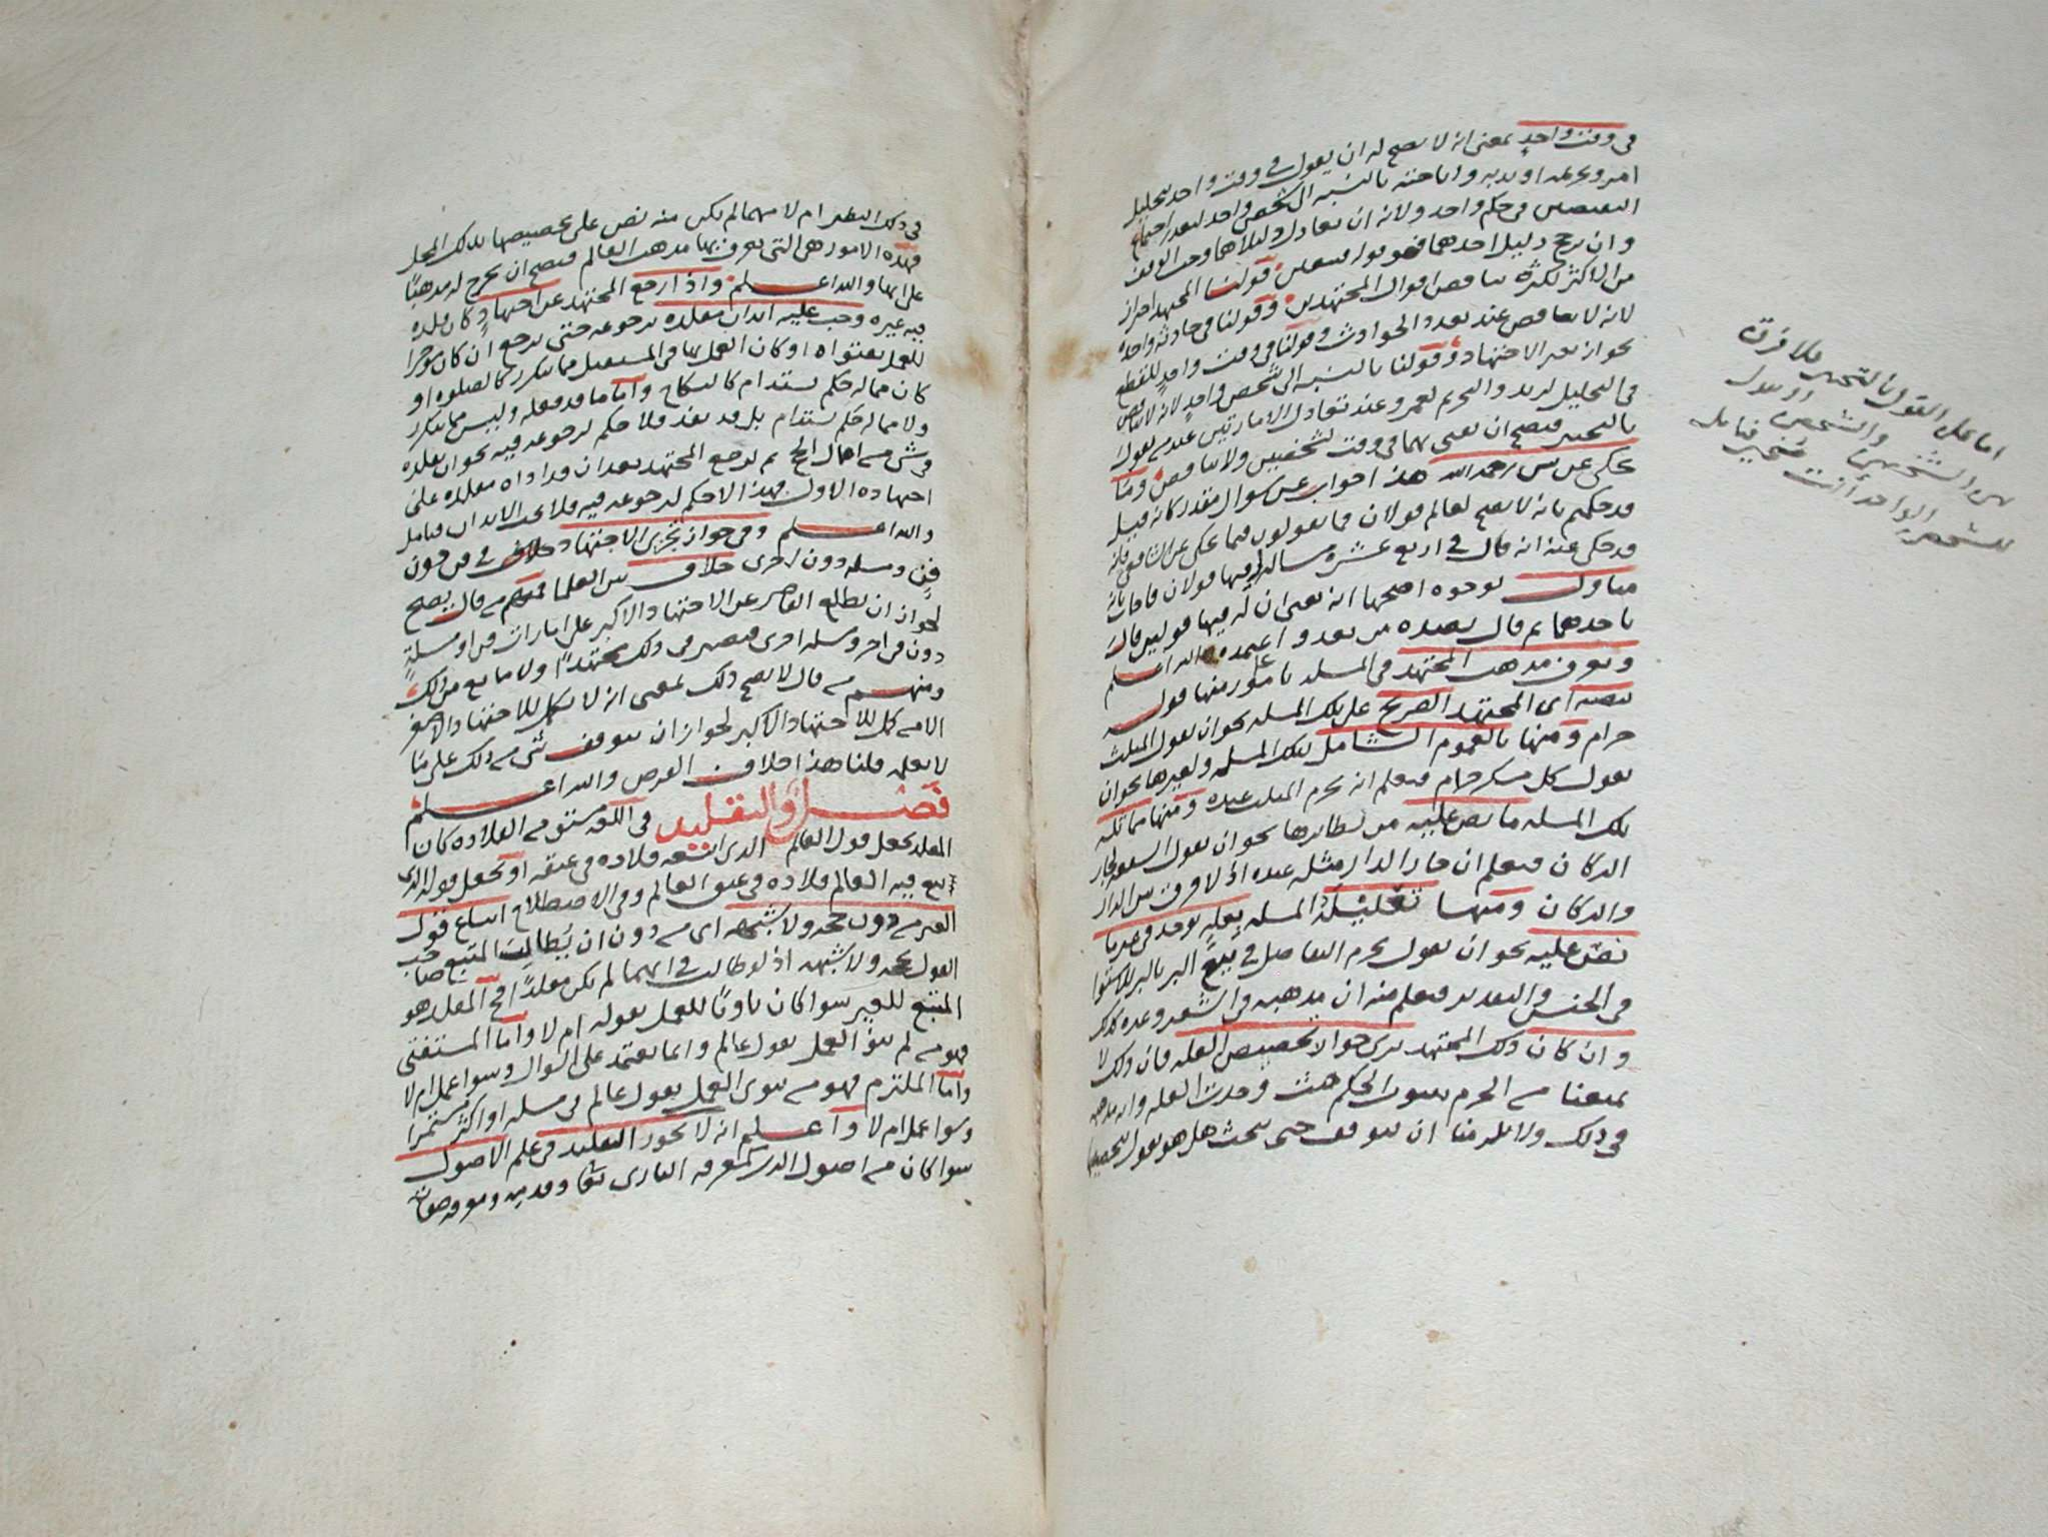 في وقت واحد بمعنى انه لا يصح له ان يقول في وقت واحد بتحليل
امر وتحريمه او ندبه واباحته بالنسبه الى شخص واحد لتعذر اجتماع
النقيضين في حكم واحد ولانه ان تعادل دليلاهما وجب الوقف
وان ترجح دليل احدهما فهو قوله فيتعين وقولنا المجتهد احتراز
من الاكثر لكثرة تناقض اقوال المجتهدين وقولنا في حادثه واحده
لانه لا تناقض عند تعدد الحوادث وقولنا في وقت واحد للقطع
بجواز تغير الاجتهاد وقولنا بالنسبه الى شخص واحد لانه لا تناقض
في التحليل لزيد والتحريم لعمرو وعند تعادل الامارتين عند من يقول
بالتخيير فيصح ان يفتي بهما في وقت لشخصين ولا تناقض وما
يحكى عن ش رحمه الله هذا جواب عن سوال مقدر كانه قيل
قد حكمتم بانه لا يصح لعالم قولان فما تقولون فيما يحكى عن الشافعي فانه
قد حكي عنه انه قال في اربع عشرة مساله فيها قولان فاجاب بانه
متاول بوجوه اصحها انه يعني ان له فيها قولين قال
باحدهما ثم قال بضده من بعد واعتمده والله اعلم
ويعرف مذهب المجتهد في المسله بامور منها قوله
بنصه اي المجتهد الصريح على تلك المسله نحو ان يقول المثلث
حرام ومنها بالعموم الشامل لتلك المسله ولغيرها نحو ان
يقول كل مسكر حرام فيعلم انه يحرم المثلث عنده ومنها مماثلة
تلك المسله ما نص عليه من نظايرها نحو ان يقول الشفعه لجار
الدكان فيعلم ان جار الدار مثله عنده اذ لا فرق بين الدار
والدكان ومنها تعليل تلك المسله بعله توجد في غير ما
نص عليه نحو ان يقول يحرم التفاضل في بيع البر بالبر للاستوا
في الجنس والتقدير فيعلم منه ان مذهبه في الشعير وغيره كذلك
وان كان ذلك المجتهد يرى جواز تخصيص العله فان ذلك لا
يمنعنا من الجزم بثبوت الحكم حيث وجدت العله وانه مذهبه
في ذلك ولا يلزمنا ان نتوقف حتى نبحث هل هو يقول بتخصيصها
اما على القول بالتخيير فلا فرق
بين الشخصين والشخص
في ذلك النظير ام لا مهما لم يكن منه نص على تخصيصها بذلك المحل
فهذه الامور هي التي يعرف بها مذهب العالم فيصح ان يخرج له مذهبًا
على ايها والله اعلم واذا رجع المجتهد عن اجتهادٍ كان قلده
فيه غيره وجب عليه ايذان مقلده برجوعه حتى يرجع ان كان موخرا
للعمل بفتواه او كان العمل بها في المستقبل مما يتكرر كالصلوه او
كان مما له حكم يستدام كالنكاح واما ما قد فعله وليس مما يتكرر
ولا مما له حكم يستدام بل قد نفذ فلا حكم لرجوعه فيه نحو ان يقلده
في شي من اعمال الحج ثم يرجع المجتهد بعد ان قد اداه مقلده على
اجتهاده الاول فهذا لا حكم لرجوعه فيه فلا يجب الايذان فتامل
والله اعلم وفي جواز تجزي الاجتهاد خلاف في فن دون
فن ومسله دون اخرى خلاف بين العلما فمنهم من قال يصح
لجواز ان يطلع القاصر عن الاجتهاد الاكبر على امارات فن او مسلةٍ
دون فن اخر ومسله اخرى فيصير في ذلك مجتهدًا ولا مانع من ذلك
ومنهم من قال لا يصح ذلك بمعنى انه لا يكمل للاجتهاد الاصغر
الا من كمل للاجتهاد الاكبر لجواز ان يتوقف شي من ذلك على ما
لا يعلمه قلنا هذا خلاف الفرض والله اعلم
فصل والتقليد في اللغه مشتق من القلاده كان
المقلد يجعل قول العالم الذي اتبعه قلاده في عنقه او يجعل قوله الذي
تبع فيه العالم قلاده في عنق العالم وفي الاصطلاح اتباع قول
الغير من دون حجه ولا شبهه اي من دون ان يُطالب المتبع صاحب
القول بحجه ولا شبهه اذ لو طالب في ايهما لم يكن مقلدًا فح المقلد هو
المتبع للغير سوا كان ناويًا للعمل بقوله ام لا واما المستفتي
فهو من لم ينو العمل بقول عالم وانما يعتمد على السوال وسوا عمل ام لا
واما الملتزم فهو من ينوي العمل بقول عالم في مسله او اكثر مستمرا
وسوا عمل ام لا واعلم انه لا يجوز التقليد في علم الاصول
سوا كان من اصول الدين كمعرفه الباري تعا وقدمه ومعرفه صفاته